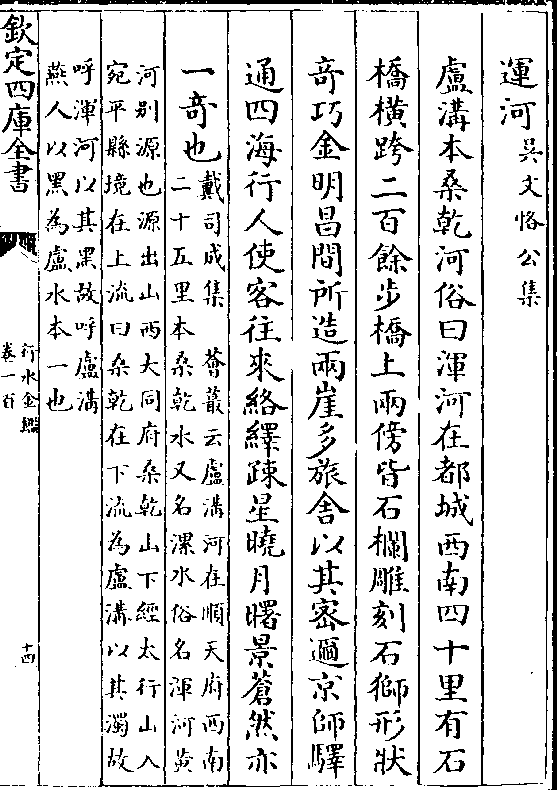 運河 吳文恪公集
盧溝本桑乾河俗曰渾河在都城西南四十里有石
橋橫跨二百餘步橋上兩傍皆石欄雕刻石獅形狀
竒巧金明昌間所造兩崖多旅舍以其密邇京師驛
通四海行人使客往來絡繹疎星曉月曙景蒼然亦
一竒也
戴司成集 薈蕞云盧溝河在順天府西南
二十五里本桑乾水又名漯水俗名渾河黃
河别源也源出山西大同府桑乾山下經太行山入
宛平縣境在上流曰桑乾在下流為盧溝以其濁故
呼渾河以其黑故呼盧溝
燕人以黑為盧水本一也
欽定四庫全書
行水金鑑
卷一百
十四